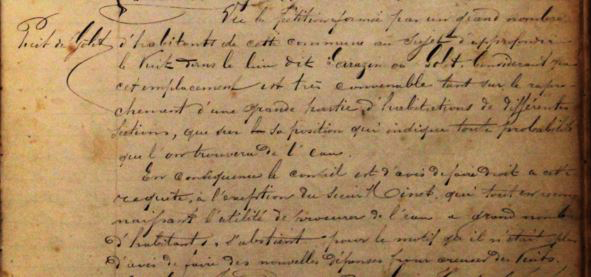 Vu la pétition formée par un grand nombre
Puit de Solt
d'habitants de cette commune au sujet d'approfondir
le Puit dans le lieu dit ou Solt. Considérant que
cet emplacement est très convenable tant sur le rapro-
chement d'une grande partie d'habitations de différentes
Sections, que sur sa position qui indique toute probabilité
que l'on trouvera de l'eau.
En conséquence le conseil est d'avis de faire droit a cette
requête, à l'exception du Sieur Oinot, qui tout en recon-
naissant l'utilité de procurer de l'eau a grand nombre
d'habitants, s'abstient, pour le motif qu'il n'était plus
d'avis de faire des nouvelles dépenses pour creuser des Puits.